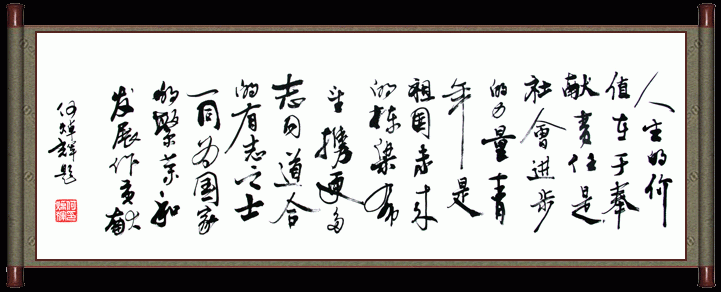 人生的价
值在于奉
献责任是
社會进步
的力量青
年是
祖国未来
的栋梁希
望携更多
志同道合
的有志之士
一同为国家
的繁荣和
发展作贡献
何焯辉题